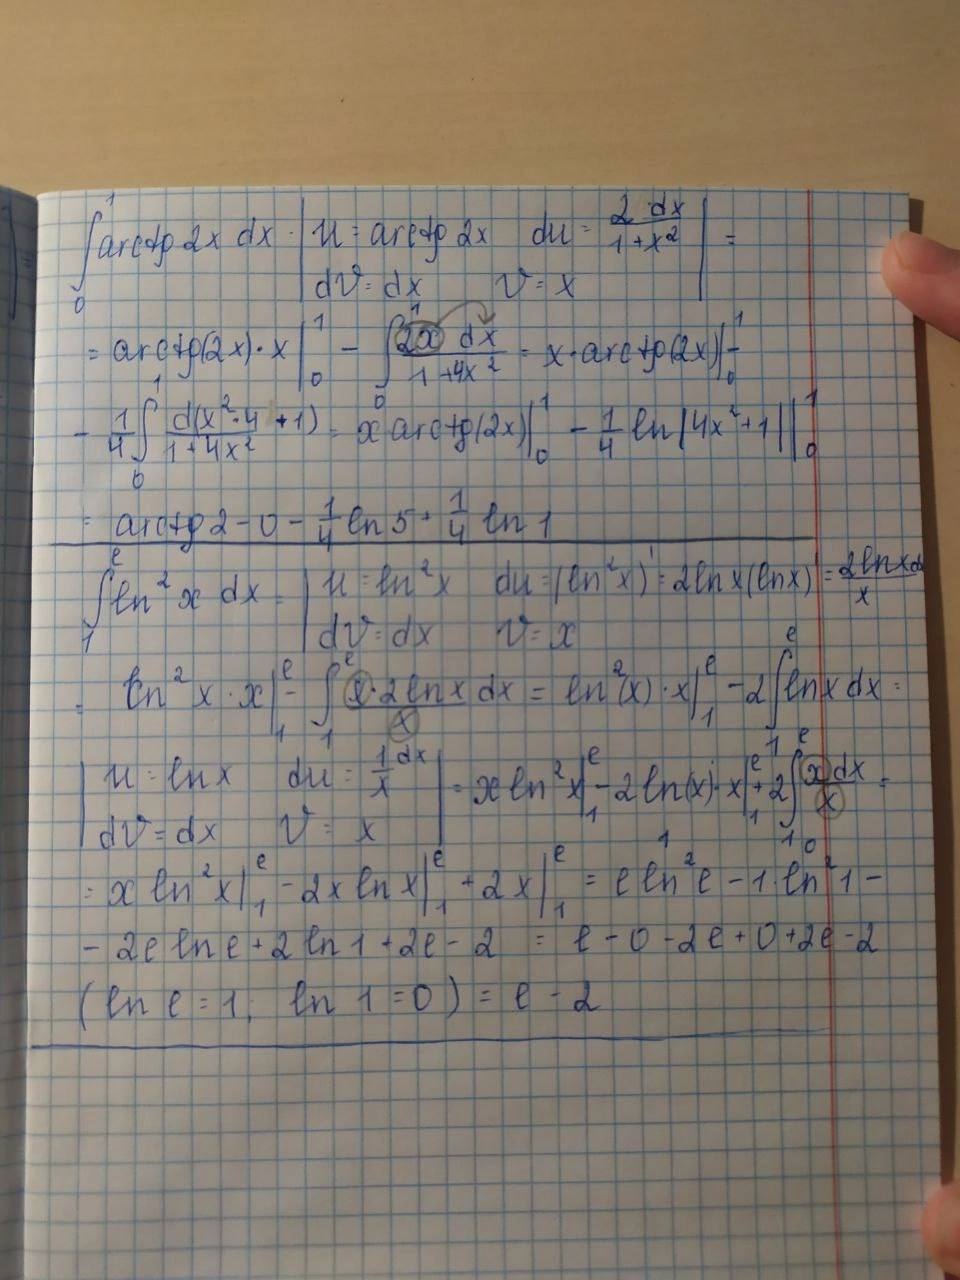 ∫₀¹ arctg 2x dx = | u = arctg 2x du = 2·dx/(1+x²) | =
dv = dx v = x
= arctg(2x)·x |₀¹ − ∫₀¹ 2x dx/(1+4x²) = x·arctg(2x)|₀¹ −
− 1/4 ∫₀¹ d(x²·4+1)/(1+4x²) = x arctg(2x)|₀¹ − 1/4 ln|4x²+1| |₀¹
= arctg 2 − 0 − 1/4 ln 5 + 1/4 ln 1
∫₁ᵉ ln²x dx = | u = ln²x du = (ln²x)' = 2ln x(ln x)' = 2ln x d/x
dv = dx v = x
= ln²x·x|₁ᵉ − ∫₁ᵉ x·2ln x dx/x = ln²(x)·x|₁ᵉ − 2∫₁ᵉ ln x dx =
| u = ln x du = 1/x dx | = x ln²x|₁ᵉ − 2ln(x)·x|₁ᵉ + 2∫₁ᵉ x dx/x =
dv = dx v = x
1 0
= x ln²x|₁ᵉ − 2x ln x|₁ᵉ + 2x|₁ᵉ = e ln²e − 1·ln²1 −
− 2e ln e + 2 ln 1 + 2e − 2 = e − 0 − 2e + 0 + 2e − 2
(ln e = 1; ln 1 = 0) = e − 2